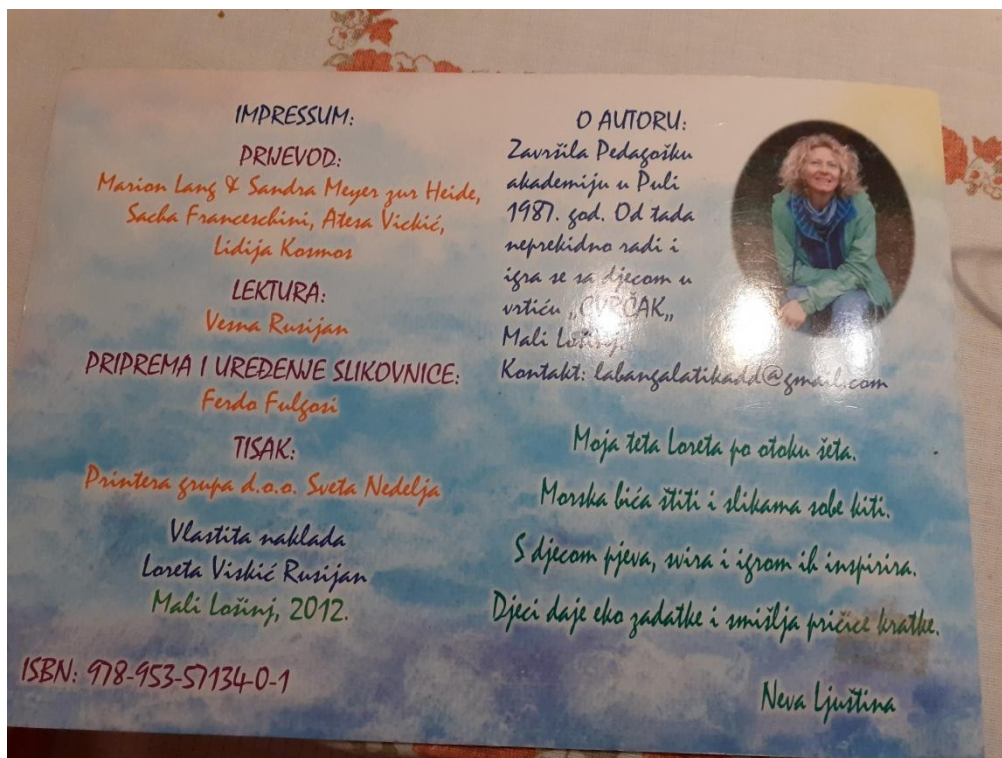 IMPRESSUM:
PRIJEVOD:
Marion Lang & Sandra Meyer zur Heide,
Sacha Franceschini, Atesa Vickić,
Lidija Kosmos
LEKTURA:
Vesna Rusijan
PRIPREMA I UREĐENJE SLIKOVNICE:
Ferdo Fulgosi
TISAK:
Printera grupa d.o.o. Sveta Nedelja
Vlastita naklada
Loreta Viskić Rusijan
Mali Lošinj, 2012.
ISBN: 978-953-57134-0-1
O AUTORU:
Završila Pedagošku
akademiju u Puli
1987. god. Od tada
neprekidno radi i
igra se sa djecom u
vrtiću „CVRČAK„
Mali Lošinj.
Kontakt: labangalatikadd@gmail.com
Moja teta Loreta po otoku šeta.
Morska bića štiti i slikama sobe kiti.
S djecom pjeva, svira i igrom ih inspirira.
Djeci daje eko zadatke i smišlja pričice kratke.
Neva Ljuština